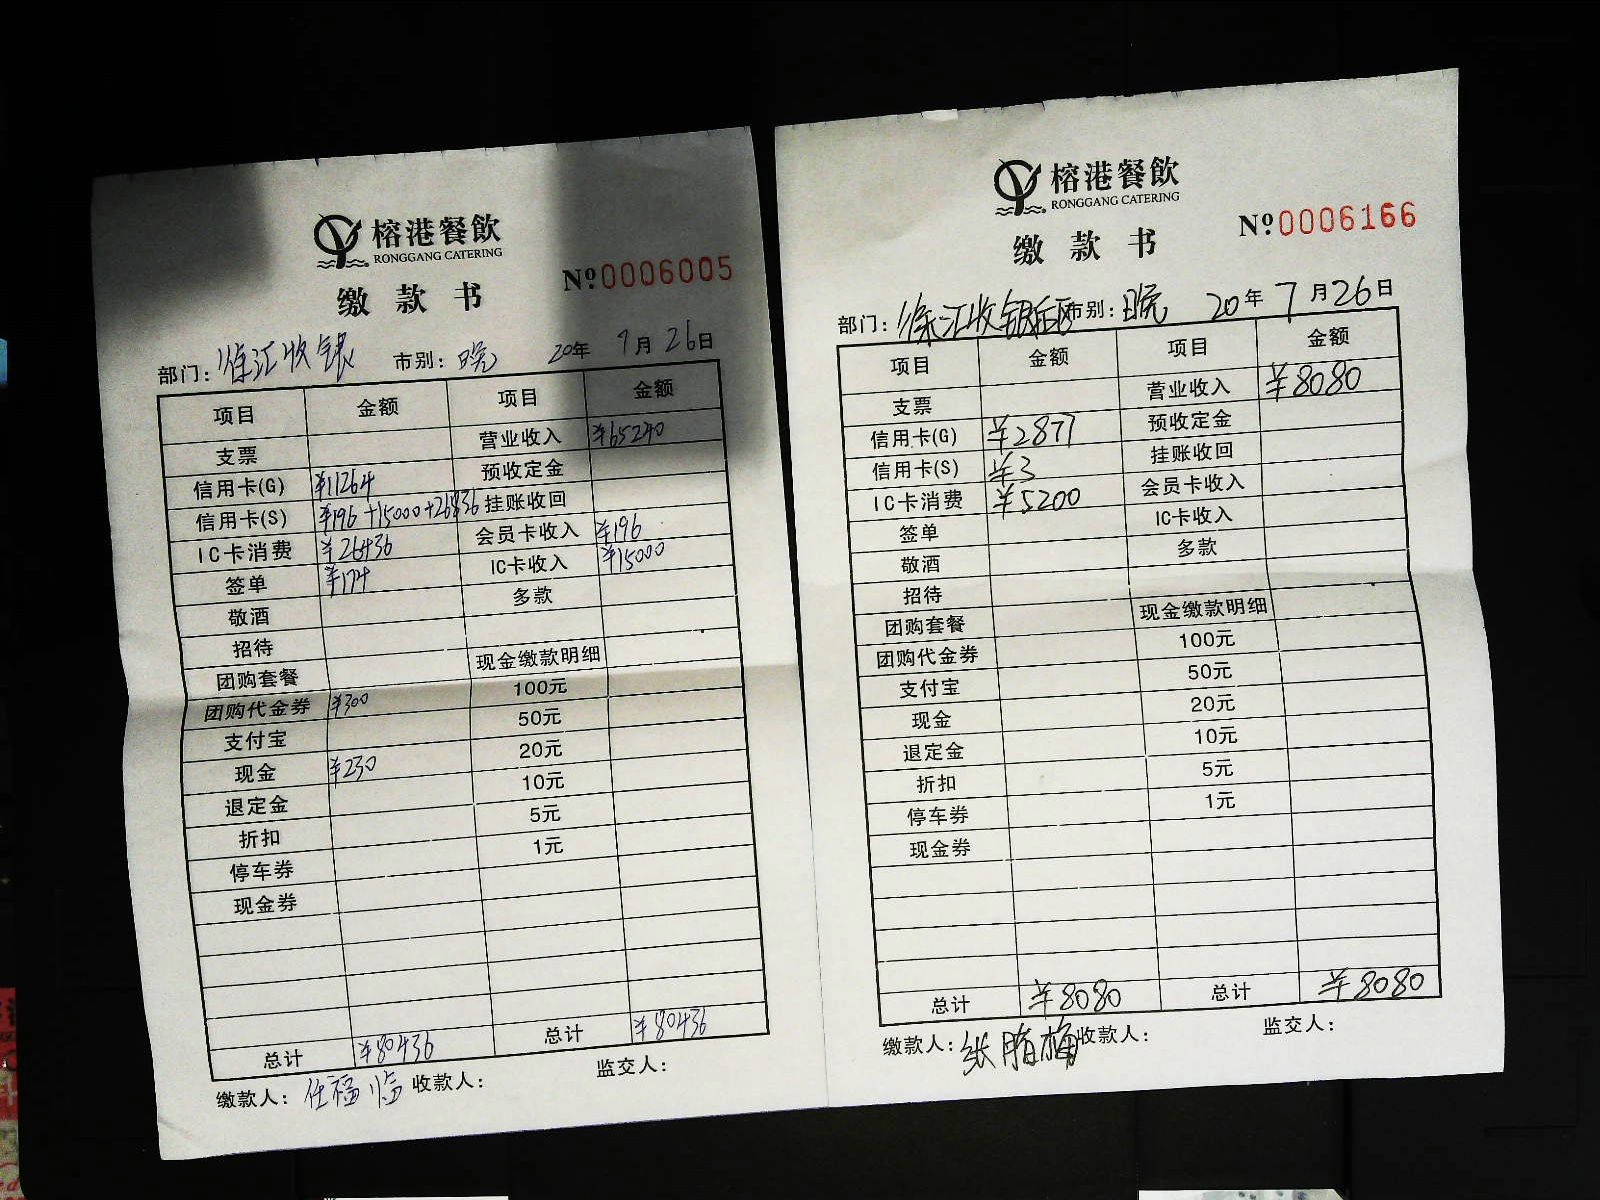 榕港餐飲
RONGGANG CATERING
缴款书
Nº0006005
部门：徐汇收银 市别：晚 20年7月26日
项目 金额 项目 金额
支票 营业收入 ¥65240
信用卡(G) ¥11264 预收定金
信用卡(S) ¥196+15000+26836 挂账收回
IC卡消费 ¥26436 会员卡收入 ¥196
签单 ¥174 IC卡收入 ¥15000
敬酒 多款
招待
团购套餐 现金缴款明细
团购代金券 ¥300 100元
支付宝 50元
现金 ¥230 20元
退定金 10元
折扣 5元
停车券 1元
现金券
总计 ¥80436 总计 ¥80436
缴款人：任福临 收款人： 监交人：
榕港餐飲
RONGGANG CATERING
缴款书
Nº0006166
部门：徐汇收银 市别：晚 20年7月26日
项目 金额 项目 金额
支票 营业收入 ¥8080
信用卡(G) ¥2877 预收定金
信用卡(S) ¥3 挂账收回
IC卡消费 ¥5200 会员卡收入
签单 IC卡收入
敬酒 多款
招待
团购套餐 现金缴款明细
团购代金券 100元
支付宝 50元
现金 20元
退定金 10元
折扣 5元
停车券 1元
现金券
总计 ¥8080 总计 ¥8080
缴款人： 收款人： 监交人：